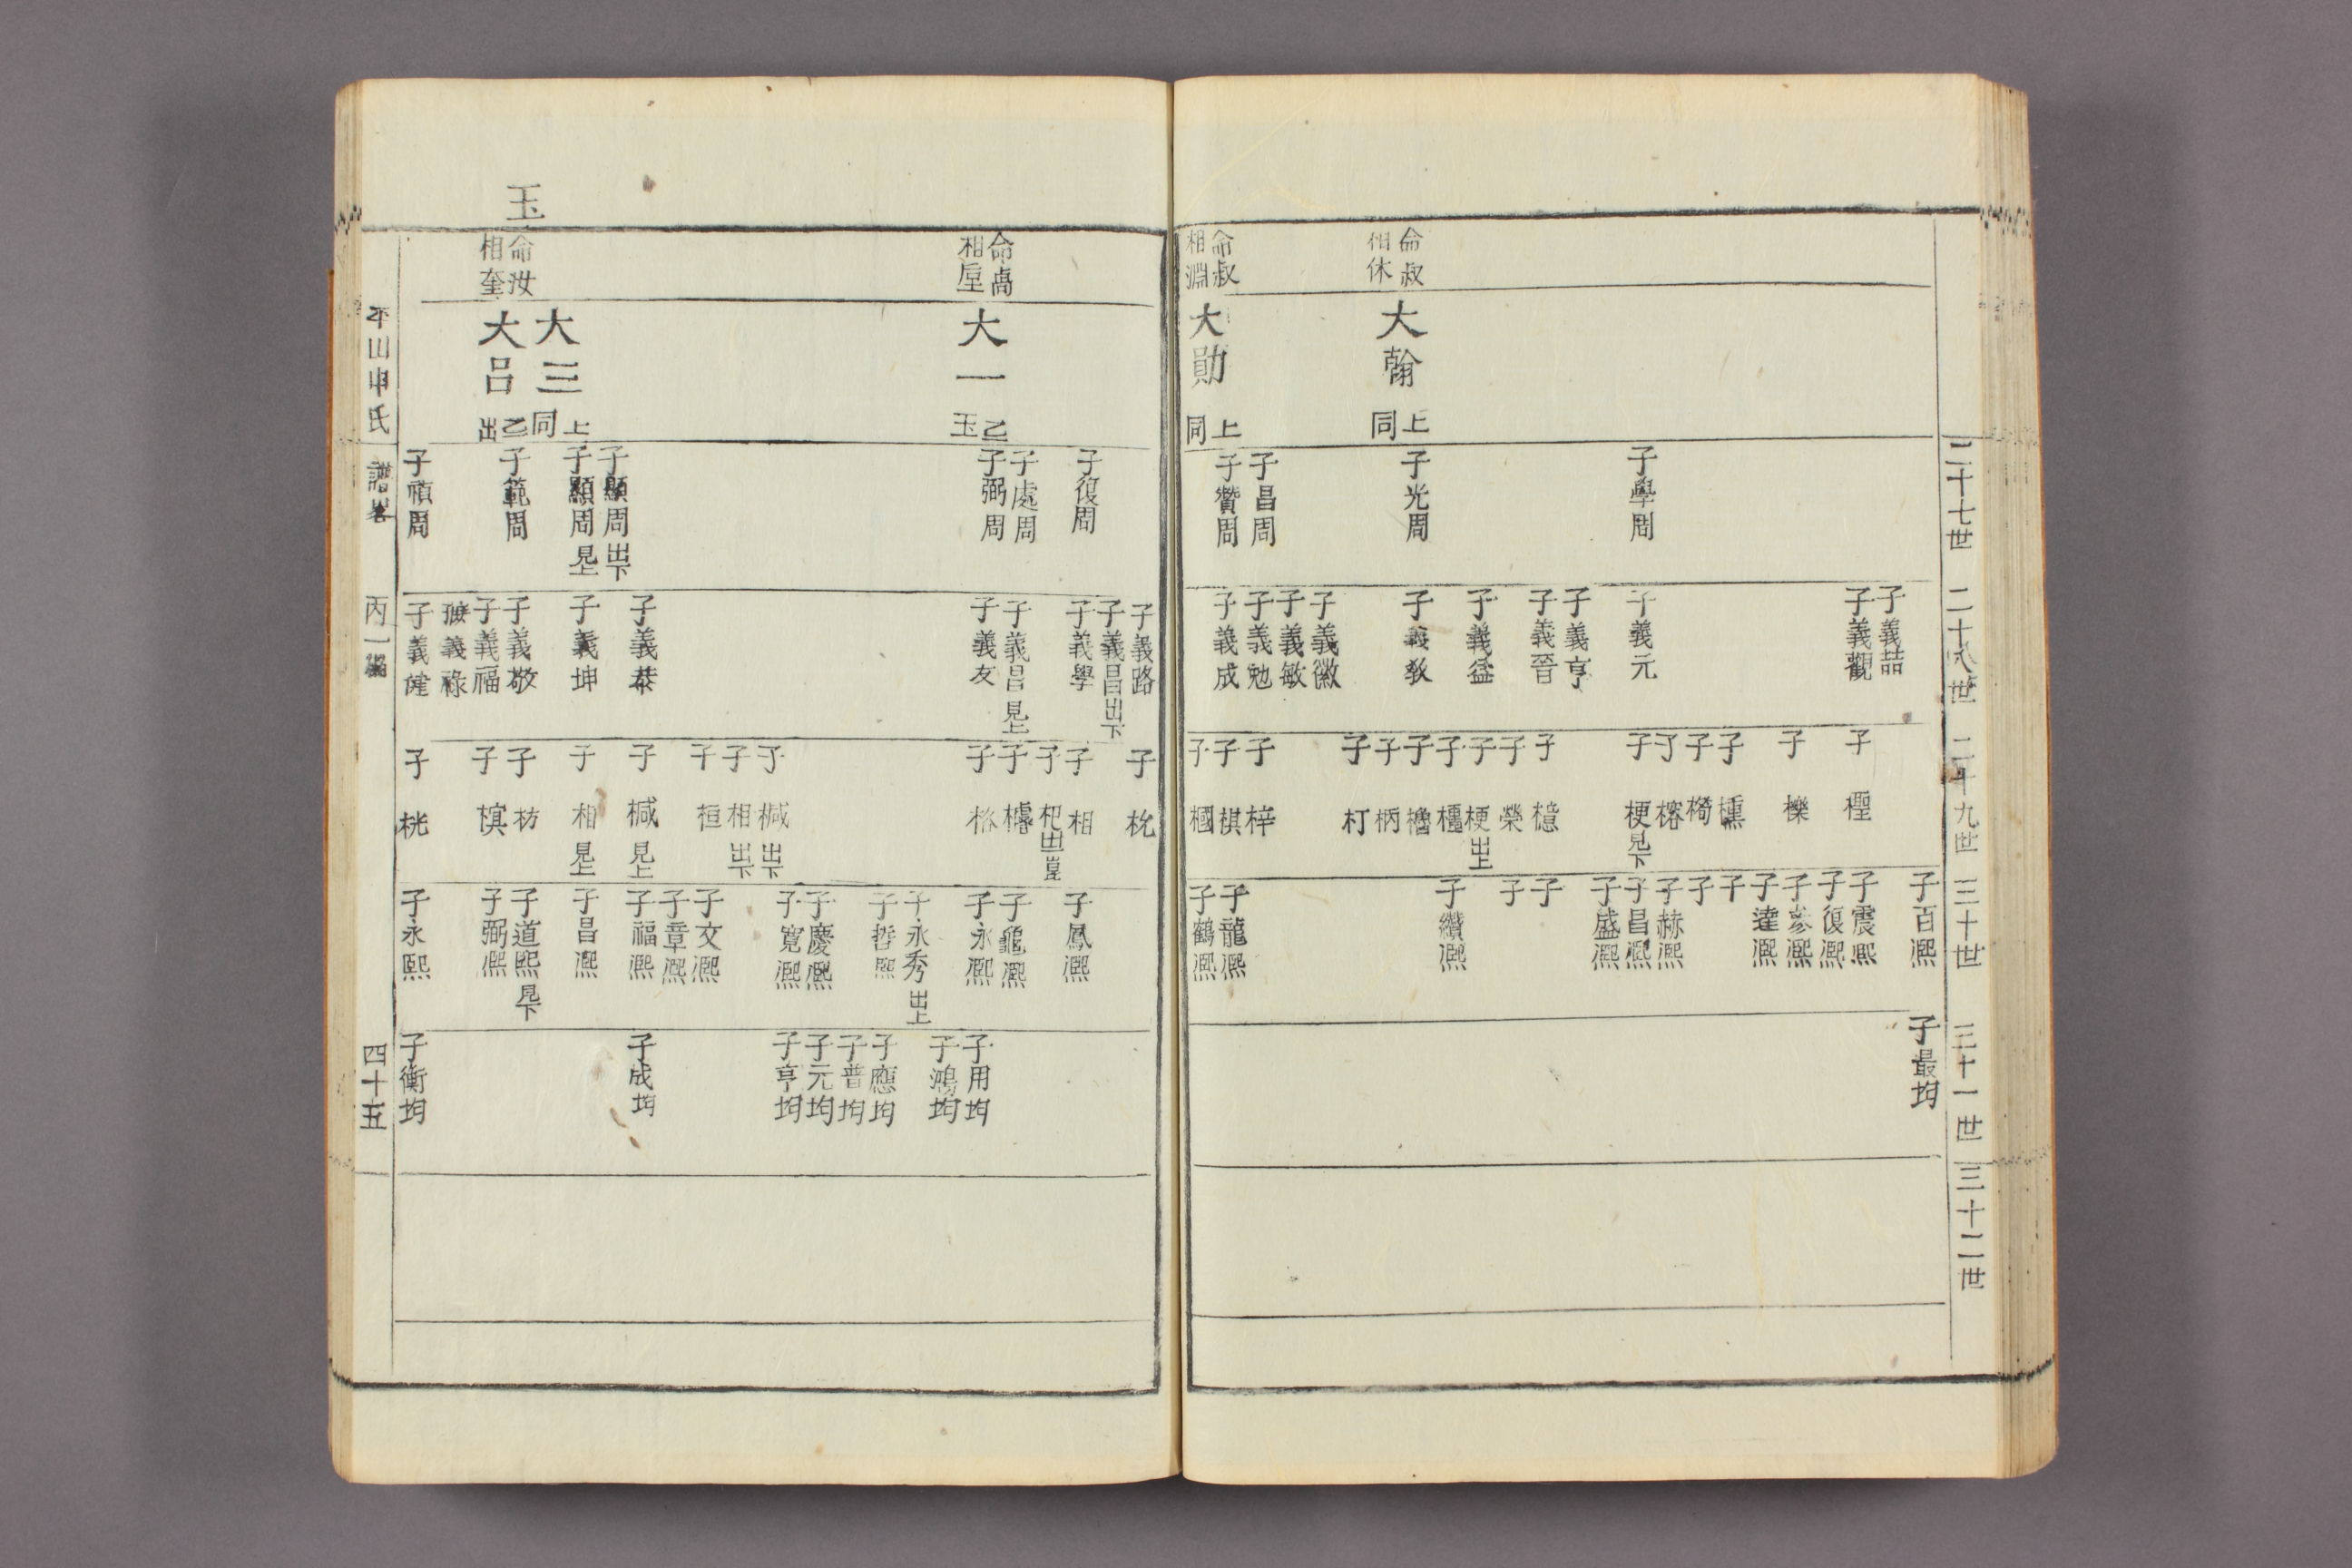 二十七世
二十八世
二十九世
三十世
三十一世
三十二世
命叔
相休
命叔
相淵
大翰 上同
大勛 上同
子學周
子光周
子昌周
子贊周
子義喆
子義觀
子義元
子義亨
子義晉
子義益
子義敎
子義徽
子義敏
子義勉
子義成
子檉
子櫟
子櫄
子椅
子榕
子梗 見下
子檍
子榮
子梗 出上
子櫓
子柄
子朾
子梓
子棋
子槶
子百熈
子震熈
子復熈
子參熈
子達熈
子
子
子赫熈
子昌熈
子盛熈
子
子
子纘熈
子龍熈
子鶴熈
子最均
玉
命卨
命汝
相奎
大一 乙玉
大三 上同
大呂 乙出
子復周
子處周
子弼周
子顯周 出下
子顯周 見上
子範周
子禎周
子義路
子義昌 出下
子義學
子義昌 見上
子義友
子義恭
子義坤
子義敬
子義福
子義健
子梲
子相
子杞
子格
子椷 出下
子相 出下
子桓
子椷 見上
子相 見上
子枋
子桄
子鳳熈
子龜熈
子永熈
子永秀 出上
子哲熙
子慶熈
子寬熈
子文熈
子章熈
子福熈
子昌熈
子道熙 見下
子弼熈
子永熙
子用均
子鴻均
子應均
子普均
子元均
子亨均
子成均
子衡均
平山申氏 譜畧 丙一編 四十五